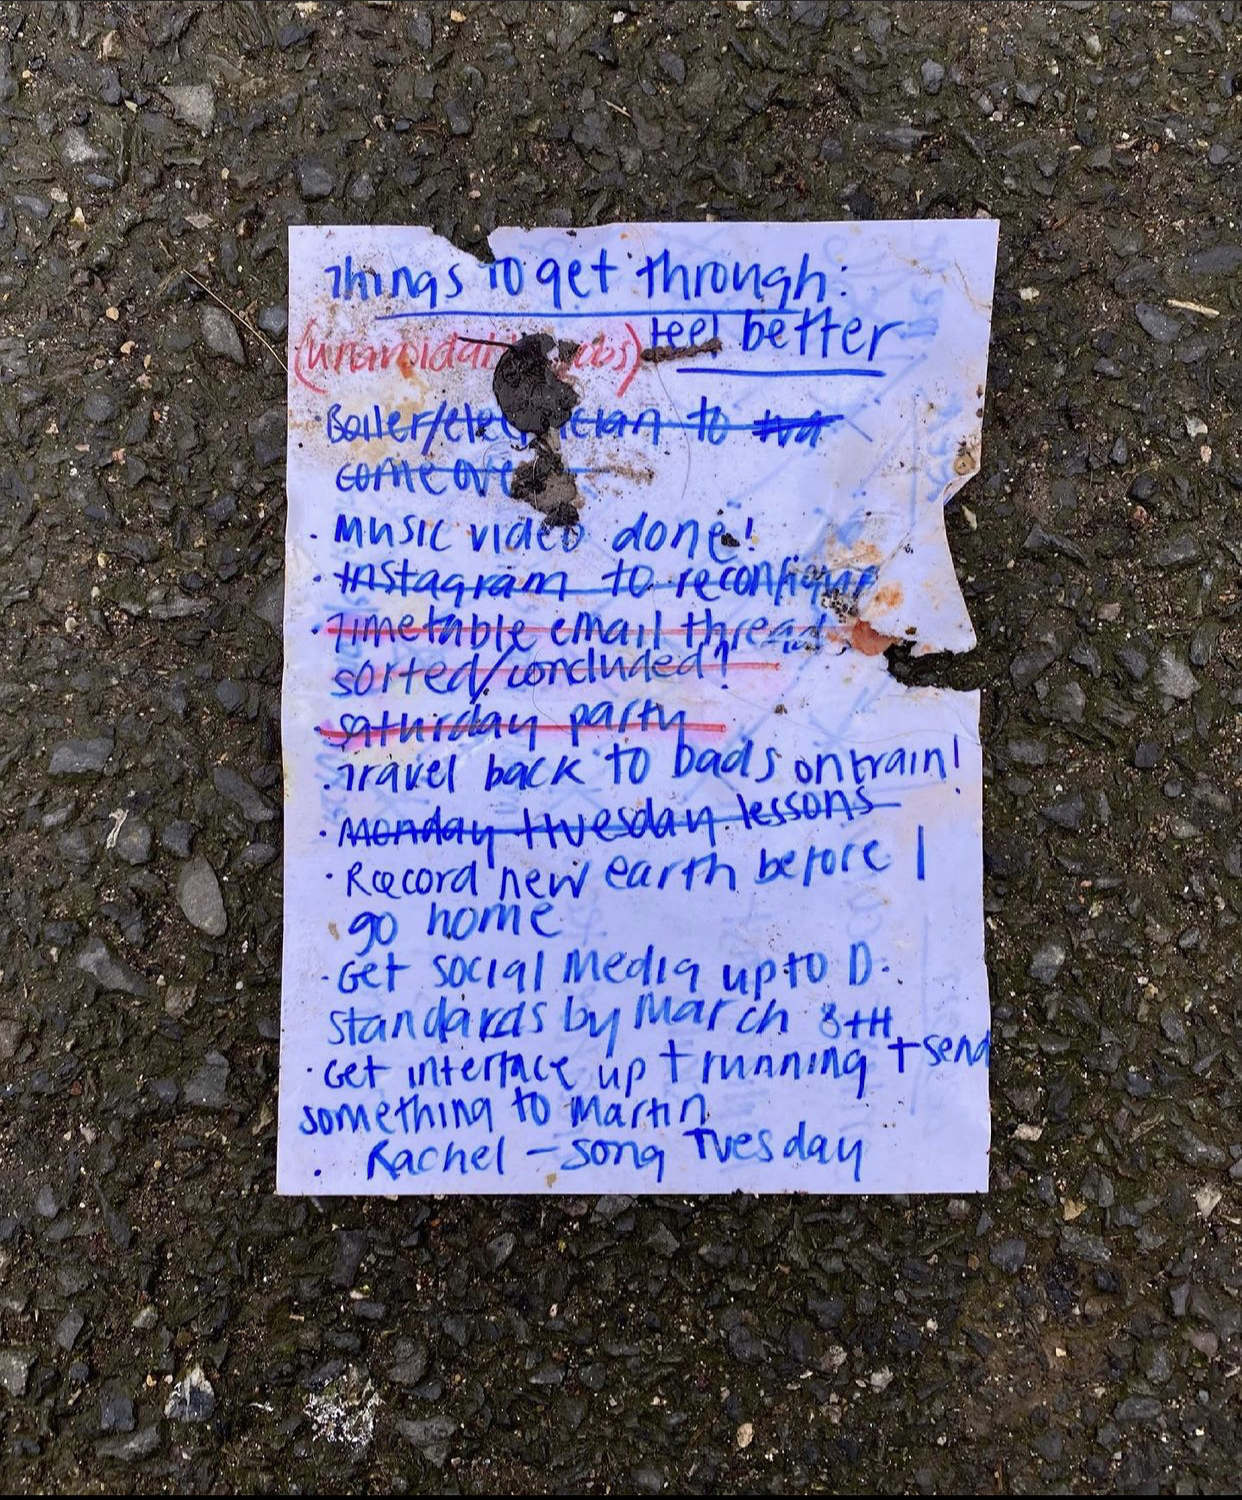 Things to get through:
feel better
(unavoidable jobs)
· Boiler/electrician to
come over
· Music video done!
· Instagram to reconfigure
· Timetable email thread
sorted/concluded!
· Saturday party
· Travel back to Dads on train!
· Monday + Tuesday lessons
· Record new earth before I
go home
· Get social media up to D.
standards by March 8TH
· Get interface up + running + send
something to Martin
· Rachel – song Tuesday